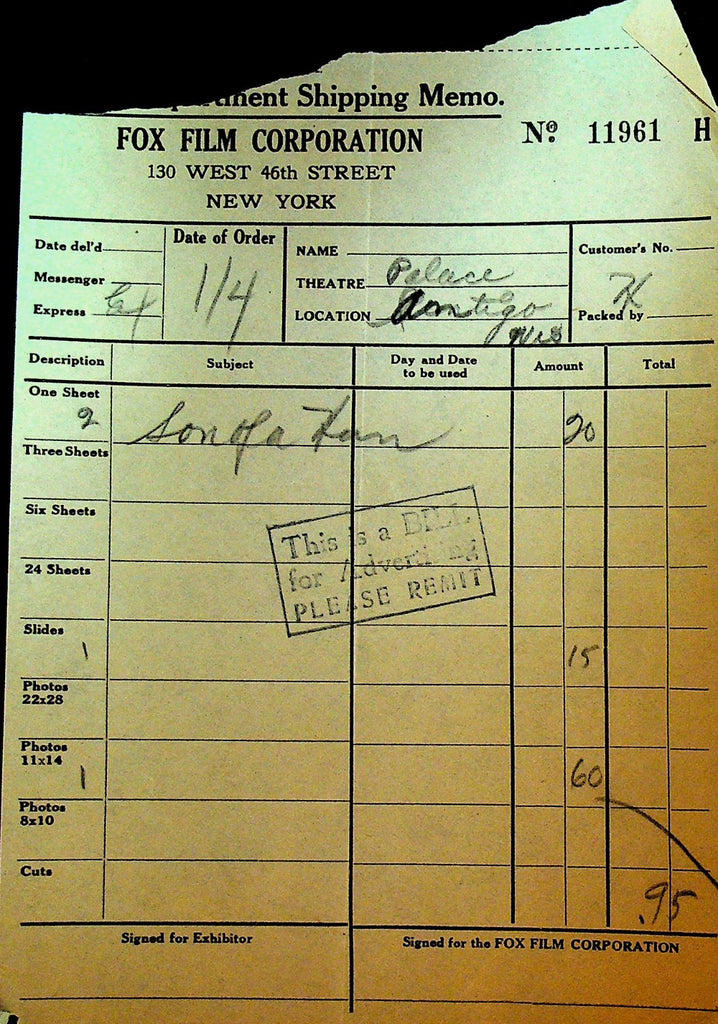 Shipping Memo.
FOX FILM CORPORATION
Nº 11961 H
130 WEST 46th STREET
NEW YORK
Date del'd
Messenger
Express Ex
Date of Order
1/4
NAME
THEATRE Palace
LOCATION Antigo
Wis
Customer's No.
Packed by
Description
Subject
Day and Date
to be used
Amount
Total
One Sheet
2
20
Three Sheets
Six Sheets
24 Sheets
This is a BILL
for Advertising
PLEASE REMIT
Slides
1
15
Photos
22x28
Photos
11x14
1
60
Photos
8x10
Cuts
.95
Signed for Exhibitor
Signed for the FOX FILM CORPORATION